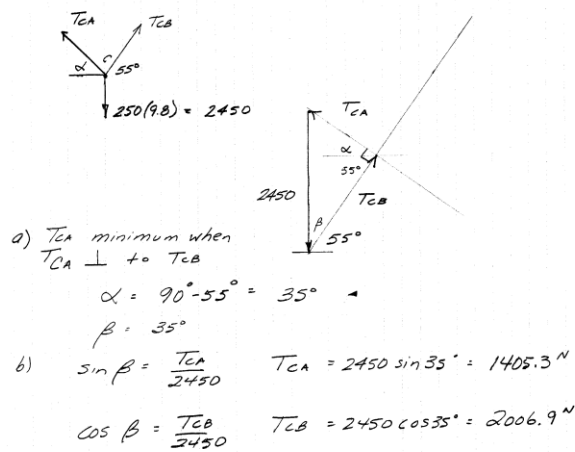 T_CA T_CB
α C 55°
250(9.8) = 2450
T_CA
α
55°
2450 T_CB
β 55°
a) T_CA minimum when
T_CA ⊥ to T_CB
α = 90° - 55° = 35°
β = 35°
b) sin β = T_CA / 2450 T_CA = 2450 sin 35° = 1405.3 N
cos β = T_CB / 2450 T_CB = 2450 cos 35° = 2006.9 N